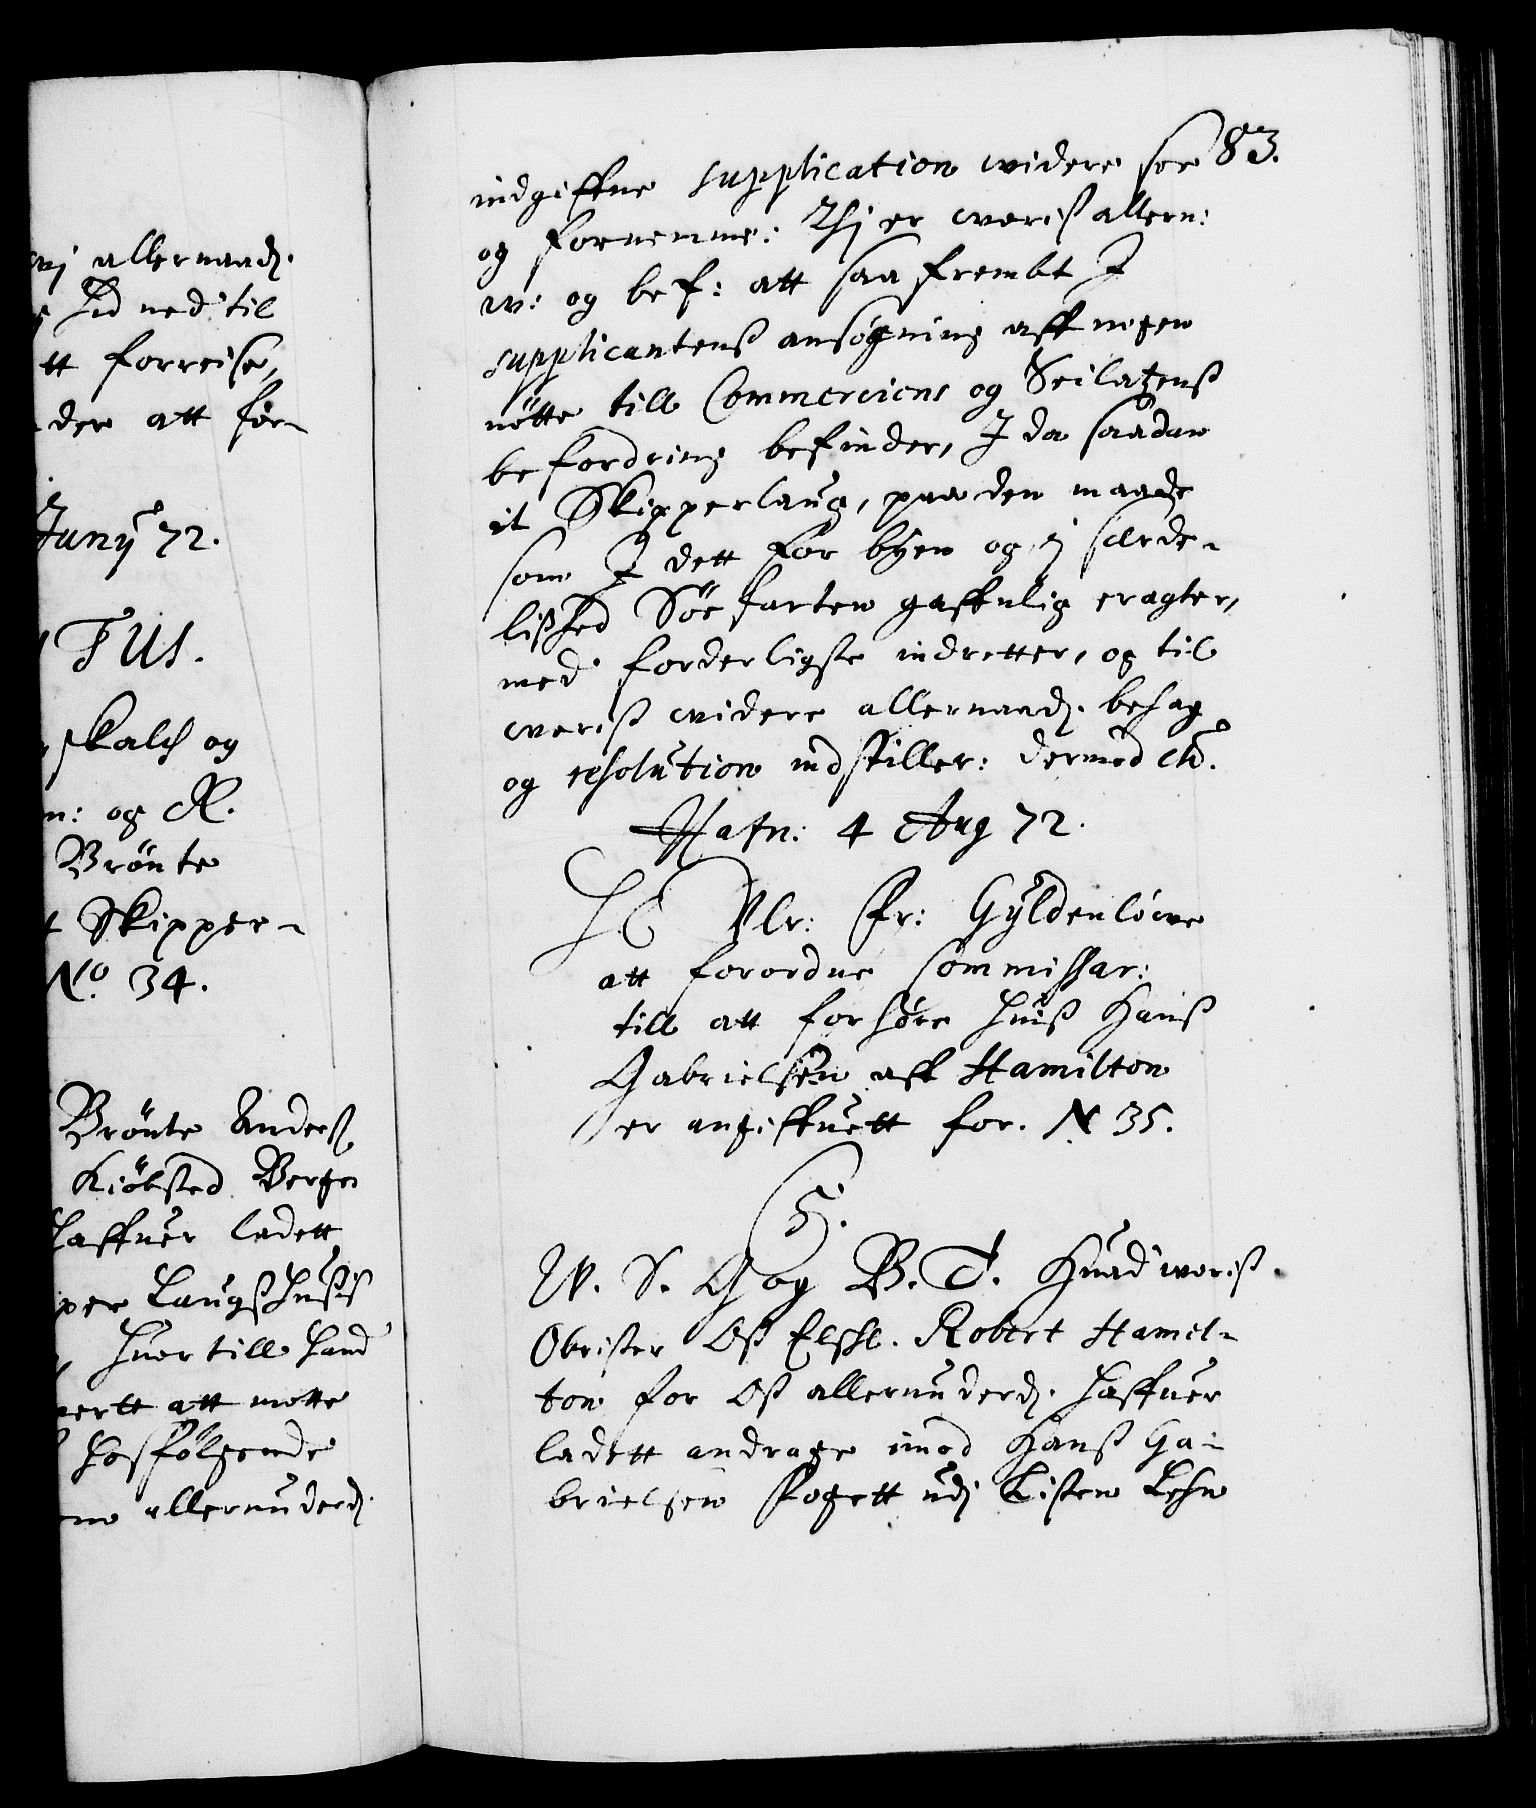 vj allernaadj.
hid ned til
tt forreise,
der att för-
Juny 72.
TUS.
skalch og
n: og R.
Brönte
t Skipper-
No. 34.
Brönte Anderß.
Kiöbsted Bergen
haffuer ladett
per Laugßhusis
, huortill hand
ertt att motte
hosfölgende
allerunderdj.
83.
indgiffne supplication widere see
og fornemme: Thj er woriß allern:
w: og bef: att saa frembt I
supplicantenß ansögning aff nogen
nötte till Commerciens og Seilatzenß
befordring befinder, I da saadan
it Skipperlaug, paa den maade
som I dett for byen og j særde-
lißhed Söefarten gaffnlig eragter,
med forderligste indretter, og til
woriß widere allernaadj. behag
og resolution indstiller: dermed etc.
Hafn: 4 Aug 72.
H E Vlr: Fr: Gyldenlöwe
att forordne Commissar:
till att forhöre huiß Hanß
Gabrielsen aff Hamilton
er angiffuett for. N 35.
C5.
W. S. G og B. T. Huad woriß
Obrister Oß Elschl. Robert Hamel-
ton for Oß allerunderdj. haffuer
ladett andrage imod Hanß Ga-
brielsen Fogett udj Listen Lehn